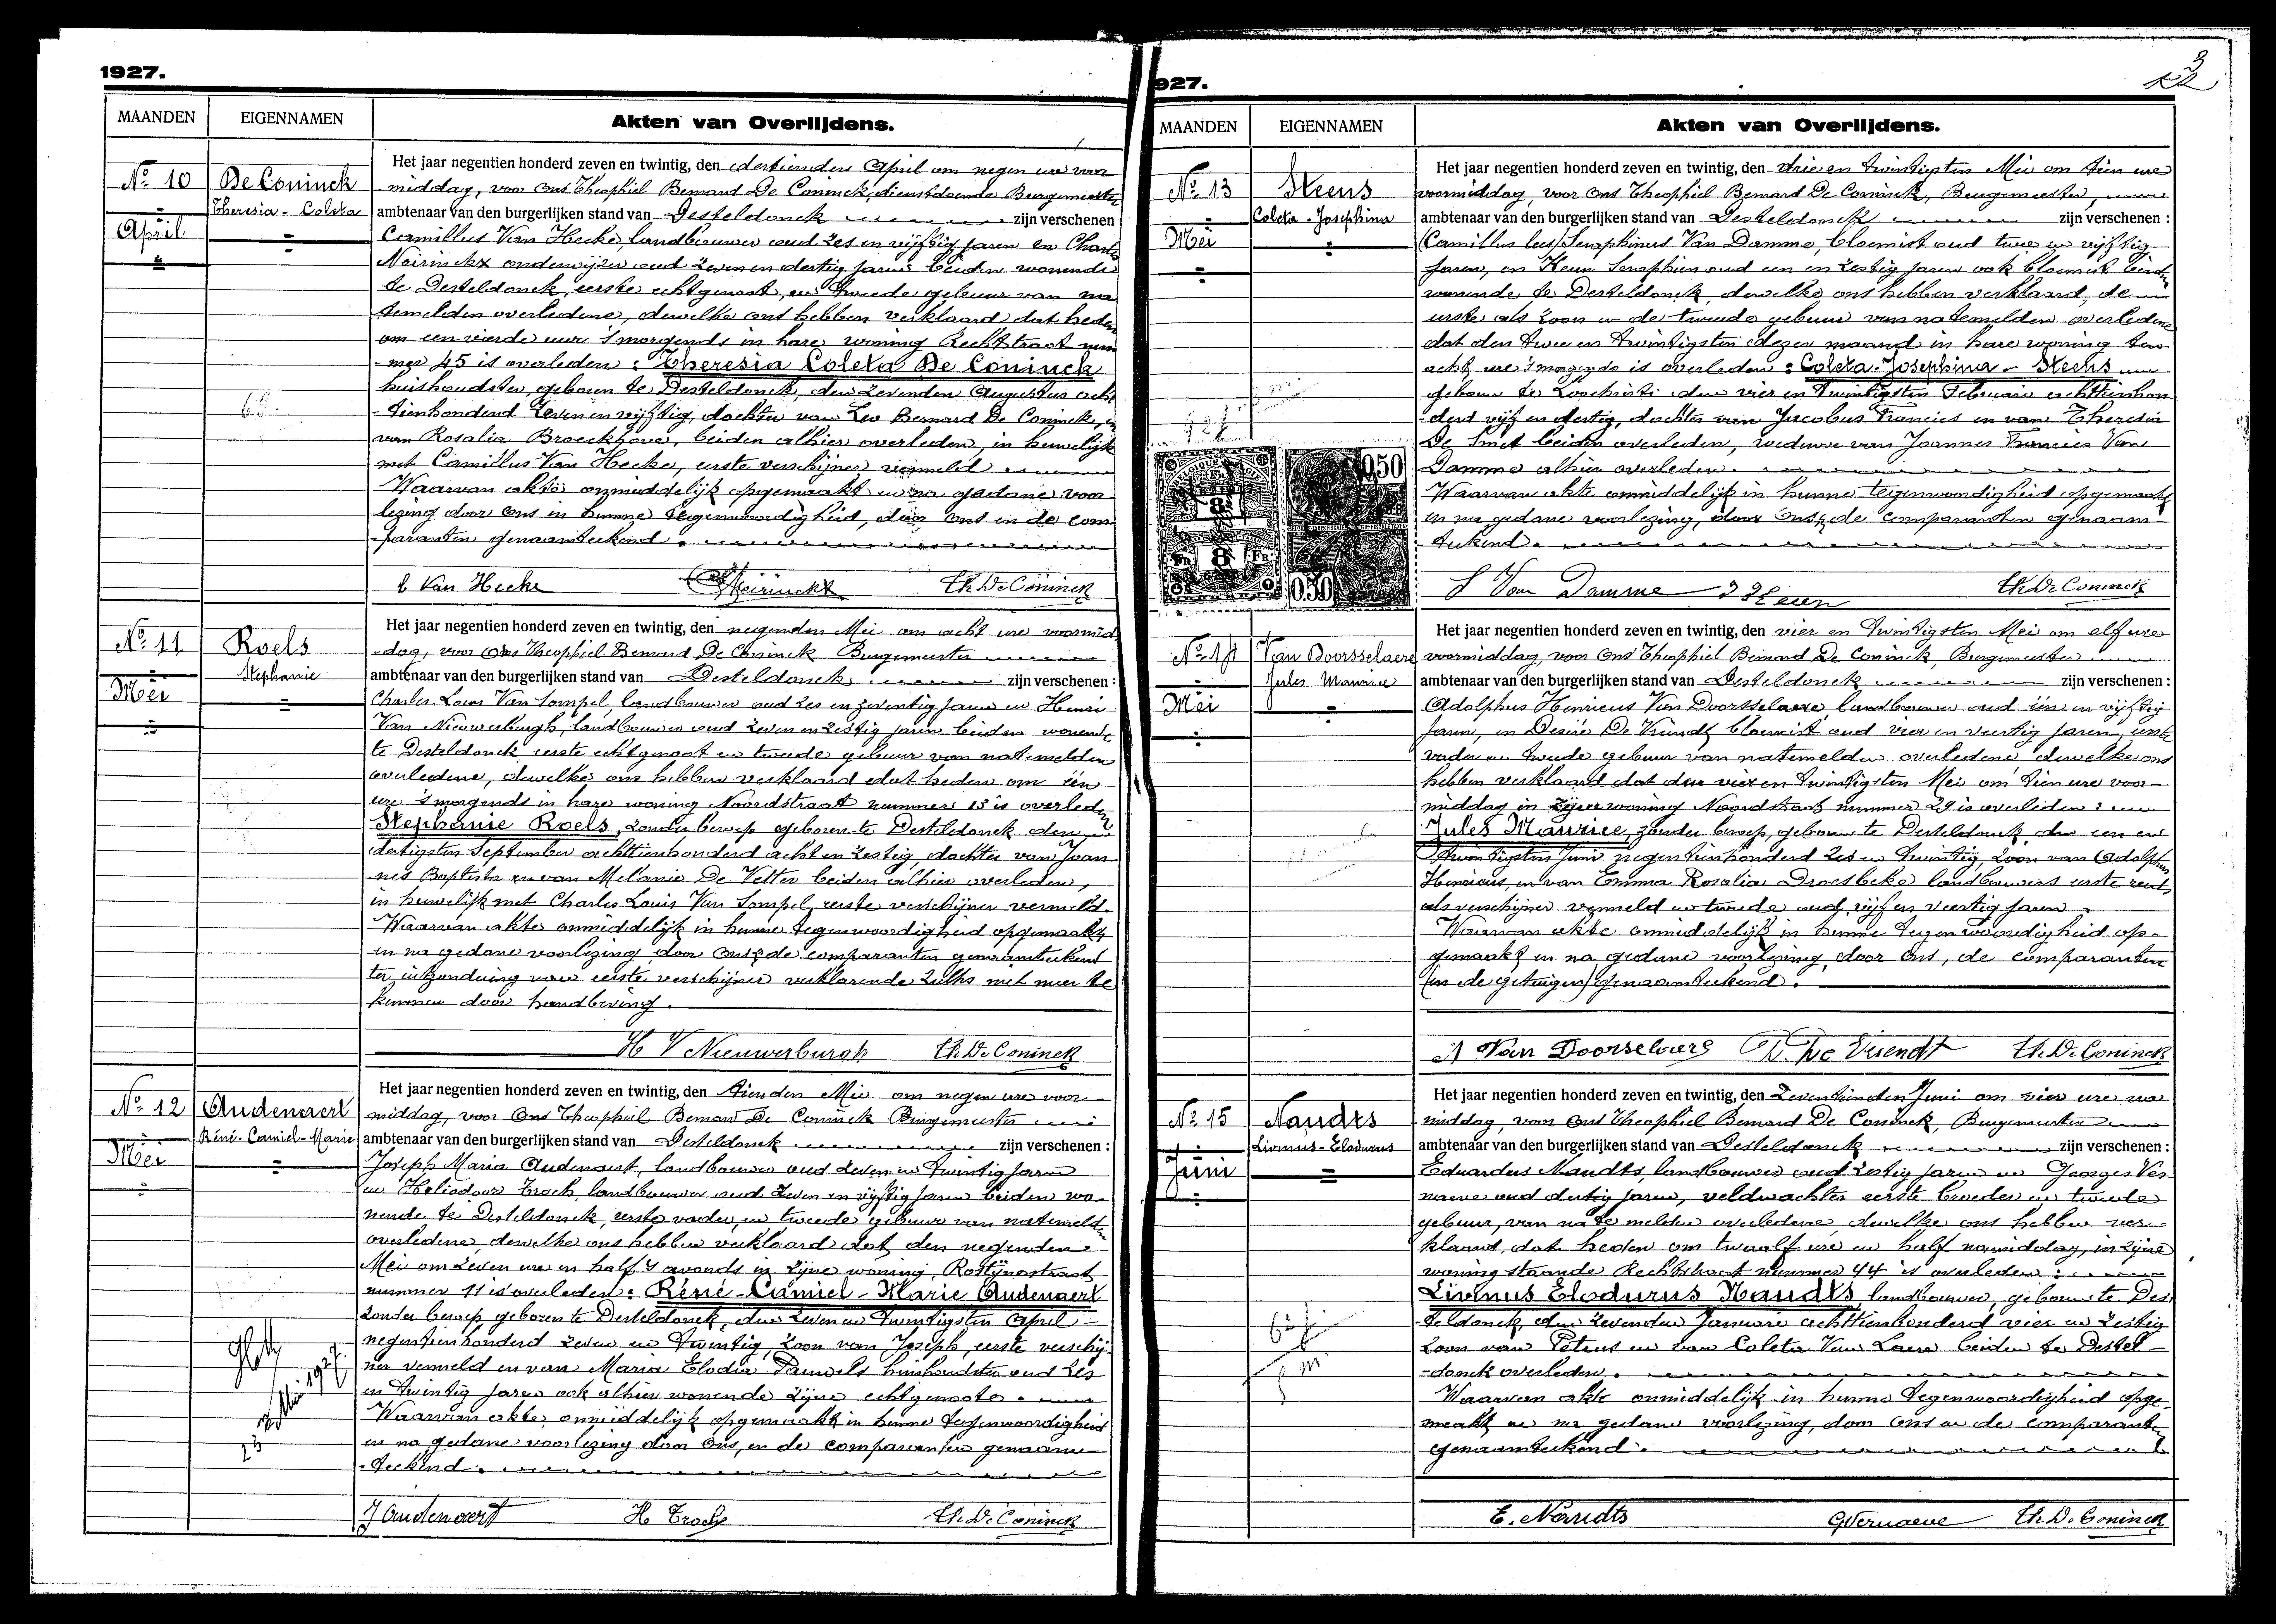 1927.
MAANDEN
EIGENNAMEN
Akten van Overlijdens.
No 10
De Coninck
Theresia - Coleta
April
Het jaar negentien honderd zeven en twintig, den dertienden April om negen ure voor
middag, voor Ons Theophiel Bernard De Coninck, dienstdoende Burgemeester
ambtenaar van den burgerlijken stand van Desteldonck zijn verschenen :
Camillus Van Hecke, landbouwer oud zes en vijftig jaren en Charles
Meirinckx onderwijzer oud zeven en dertig jaren beiden wonende
te Desteldonck, eerste echtgenoot, en tweede gebuur van na
temelden overledene, dewelke ons hebben verklaard dat heden
om een vierde ure 's morgends in hare woning Rechtstraat num
-mer 45 is overleden : Theresia Coleta De Coninck
huishoudster, geboren te Desteldonck, den zevenden Augustus acht
-tienhonderd zeven en vijftig, dochter van Leo Bernard De Coninck, en
van Rosalia Broeckhove, beiden alhier overleden, in huwelijk
met Camillus Van Hecke, eerste verschijner vermeld.
Waarvan akte onmiddelijk opgemaakt en na gedane voor
lezing door Ons in hunne tegenwoordigheid, door Ons en de com
-paranten genaamteekend.
C Van Hecke Ch Meirinckx Th. De Coninck
No 11
Roels
Stephanie
Mei
Het jaar negentien honderd zeven en twintig, den negenden Mei om acht ure voormid
-dag, voor Ons Theophiel Bernard De Coninck Burgemeester
ambtenaar van den burgerlijken stand van Desteldonck zijn verschenen :
Charles Louis Van Sompel, landbouwer oud zes en zeventig jaren en Henri
Van Nieuwerburgh, landbouwer oud zeven en zestig jaren beiden wonende
te Desteldonck eerste echtgenoot en tweede gebuur van natemelden
overledene, dewelke ons hebben verklaard dat heden om één
ure 's morgends in hare woning Noordstraat nummer 13 is overleden
Stephanie Roels, zonder beroep geboren te Desteldonck den
dertigsten September achttienhonderd acht en zestig, dochter van Joan
nes Baptista en van Melanie De Vetter beiden alhier overleden,
in huwelijk met Charles Louis Van Sompel, eerste verschijner vermeld.
Waarvan akte onmiddelijk in hunne tegenwoordigheid opgemaakt
en na gedane voorlezing door Ons & de comparanten genaamteekend
ter uitzondering van eerste verschijner verklarende zulks niet meer te
kunnen door handbeving.
H V Nieuwerburgh Th. De Coninck
No 12
Audenaert
Réné-Camiel-Marie
Mei
Het jaar negentien honderd zeven en twintig, den tienden Mei om negen ure voor
middag, voor Ons Theophiel Bernard De Coninck Burgemeester
ambtenaar van den burgerlijken stand van Desteldonck zijn verschenen :
Joseph Maria Audenaert, landbouwer oud zeven en twintig jaren
en Heliodoor Troch, landbouwer oud zeven en vijftig jaren beiden wo-
nende te Desteldonck, eerste vader, en tweede gebuur van natemelden
overledene, dewelke ons hebben verklaard dat den negenden
Mei om zeven ure en half 's avonds in zijne woning, Rostijnestraat
nummer 11 is overleden : Réné-Camiel-Marie Audenaert
zonder beroep geboren te Desteldonck, den zeven en twintigsten April
negentienhonderd zeven en twintig, zoon van Joseph, eerste verschij-
ner vermeld en van Maria Elodia Pauwels huishoudster oud zes
en twintig jaren ook alhier wonende zijne echtgenoote.
Waarvan akte onmiddelijk opgemaakt in hunne tegenwoordigheid
en na gedane voorlezing door Ons, en de comparanten genaam-
-teekend.
J Audenaert H Troch Th. De Coninck
927.
MAANDEN
EIGENNAMEN
Akten van Overlijdens.
No 13
Steens
Coleta - Josephina
Mei
Het jaar negentien honderd zeven en twintig, den drie en twintigsten Mei om tien ure
voormiddag, voor Ons Theophiel Bernard De Coninck, Burgemeester,
ambtenaar van den burgerlijken stand van Desteldonck zijn verschenen :
Seraphinus Van Damme, bloemist oud twee en vijftig
jaren, en Keun Seraphien oud een en zestig jaren ook bloemist beiden
wonende te Desteldonck, dewelke ons hebben verklaard, de
eerste als zoon en de tweede gebuur van natemelden overledene
dat den twee en twintigsten dezer maand in hare woning ten
acht ure 's morgends is overleden : Coleta-Josephina - Steens
geboren te Loochristi den vier en twintigsten Februari achttienhon
-derd vijf en dertig, dochter van Jacobus Francies en van Theresia
De Smet beiden overleden, weduwe van Joannes Francies Van
Damme alhier overleden.
Waarvan akte onmiddelijk in hunne tegenwoordigheid opgemaakt
en na gedane voorlezing, door Ons & de comparanten genaam
teekend.
S Van Damme S Keun Th. De Coninck
No 14
Van Doorsselaere
Jules Maurice
Mei
Het jaar negentien honderd zeven en twintig, den vier en twintigsten Mei om elf ure
voormiddag, voor Ons Theophiel Bernard De Coninck, Burgemeester
ambtenaar van den burgerlijken stand van Desteldonck zijn verschenen :
Adolphus Henricus Van Doorsselaere landbouwer oud één en vijftig
jaren, en Desiré De Vriendt bloemist oud vier en veertig jaren, eerste
vader en tweede gebuur van natemelden overledene dewelke ons
hebben verklaard dat den vier en twintigsten Mei om tien ure voor-
middag in zijne woning Noordstraat nummer 24 is overleden :
Jules Maurice, zonder beroep, geboren te Desteldonck den een en
twintigsten Juni negentienhonderd zes en twintig, zoon van Adolphus
Henricus, en van Emma Rosalia Droesbeke landbouwers eerste reeds
als verschijner vermeld en tweede oud vijf en veertig jaren.
Waarvan akte onmiddelijk in hunne tegenwoordigheid op-
gemaakt en na gedane voorlezing, door Ons, de comparanten
(en de getuigen) genaamteekend.
A Van Doorselaere D. De Vriendt Th. De Coninck
No 15
Naudts
Livinus-Elodurus
Juni
Het jaar negentien honderd zeven en twintig, den zeventienden Juni om vier ure na
middag, voor Ons Theophiel Bernard De Coninck, Burgemeester
ambtenaar van den burgerlijken stand van Desteldonck zijn verschenen :
Eduardus Naudts, landbouwer oud zestig jaren en Georges Ver
naeve oud dertig jaren, veldwachter eerste broeder en tweede
gebuur, van na te melden overledene dewelke ons hebben ver-
klaard, dat heden om twaalf ure en half namiddag, in zijne
woning staande Rechtstraat nummer 44 is overleden :
Livinus Elodurus Naudts landbouwer, geboren te Des
teldonck, den zevenden Januari achttienhonderd vier en zestig
zoon van Petrus en van Coleta Van Laere beiden te Destel-
-donck overleden.
Waarvan akte onmiddelijk in hunne tegenwoordigheid opge-
maakt en na gedane voorlezing, door Ons en de comparanten
genaamteekend.
E. Naudts G Vernaeve Th. De Coninck